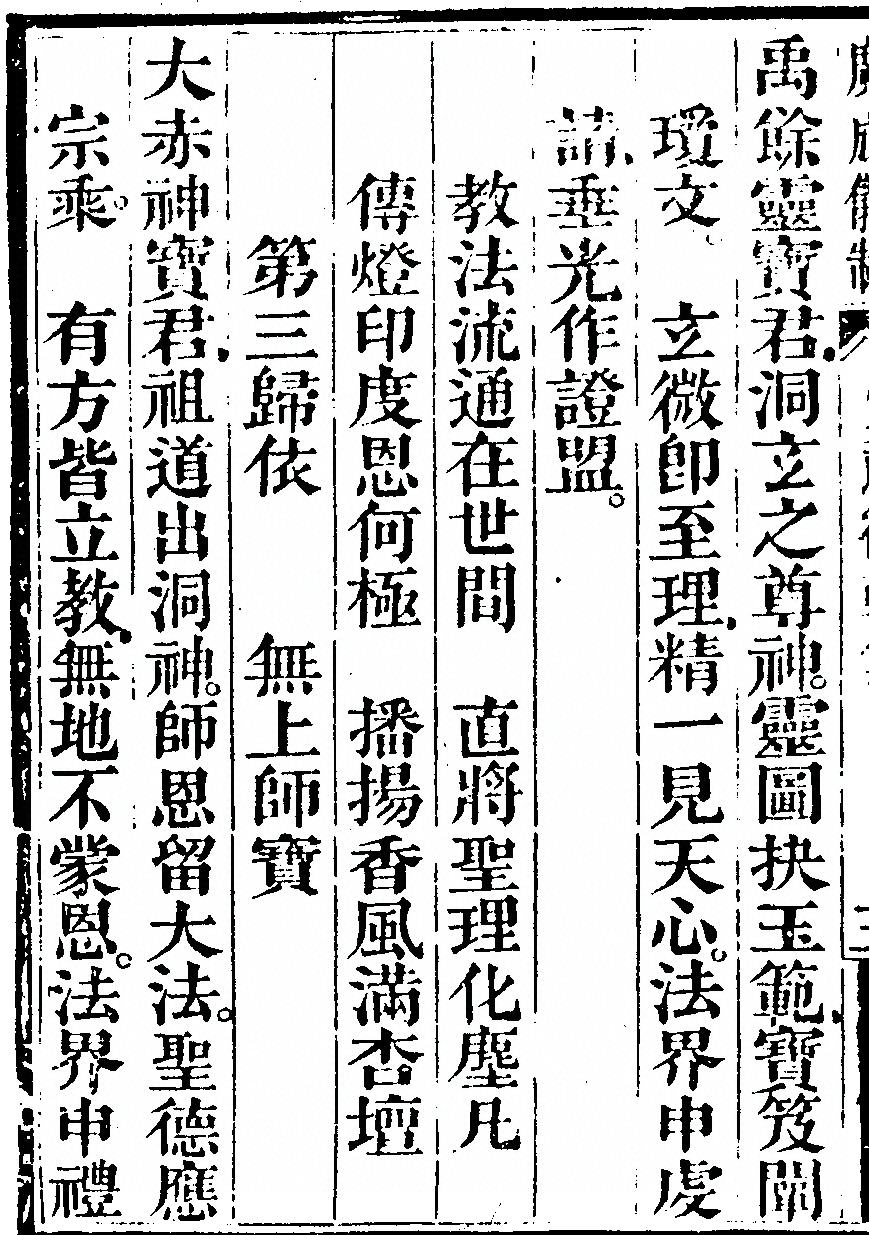 廣成儀制
禹餘靈寶君、洞立之尊神。靈圖抉玉範、寶笈闡
瓊文。 立微即至理、精一見天心。法界申虔
請、垂光作證盟。
教法流通在世間 直將聖理化塵凡
傳燈印度恩何極 播揚香風滿杏壇
第三歸依 無上師寶
大赤神寶君、祖道出洞神。師恩留大法。聖德應
宗乘。 有方皆立教、無地不蒙恩。法界申禮